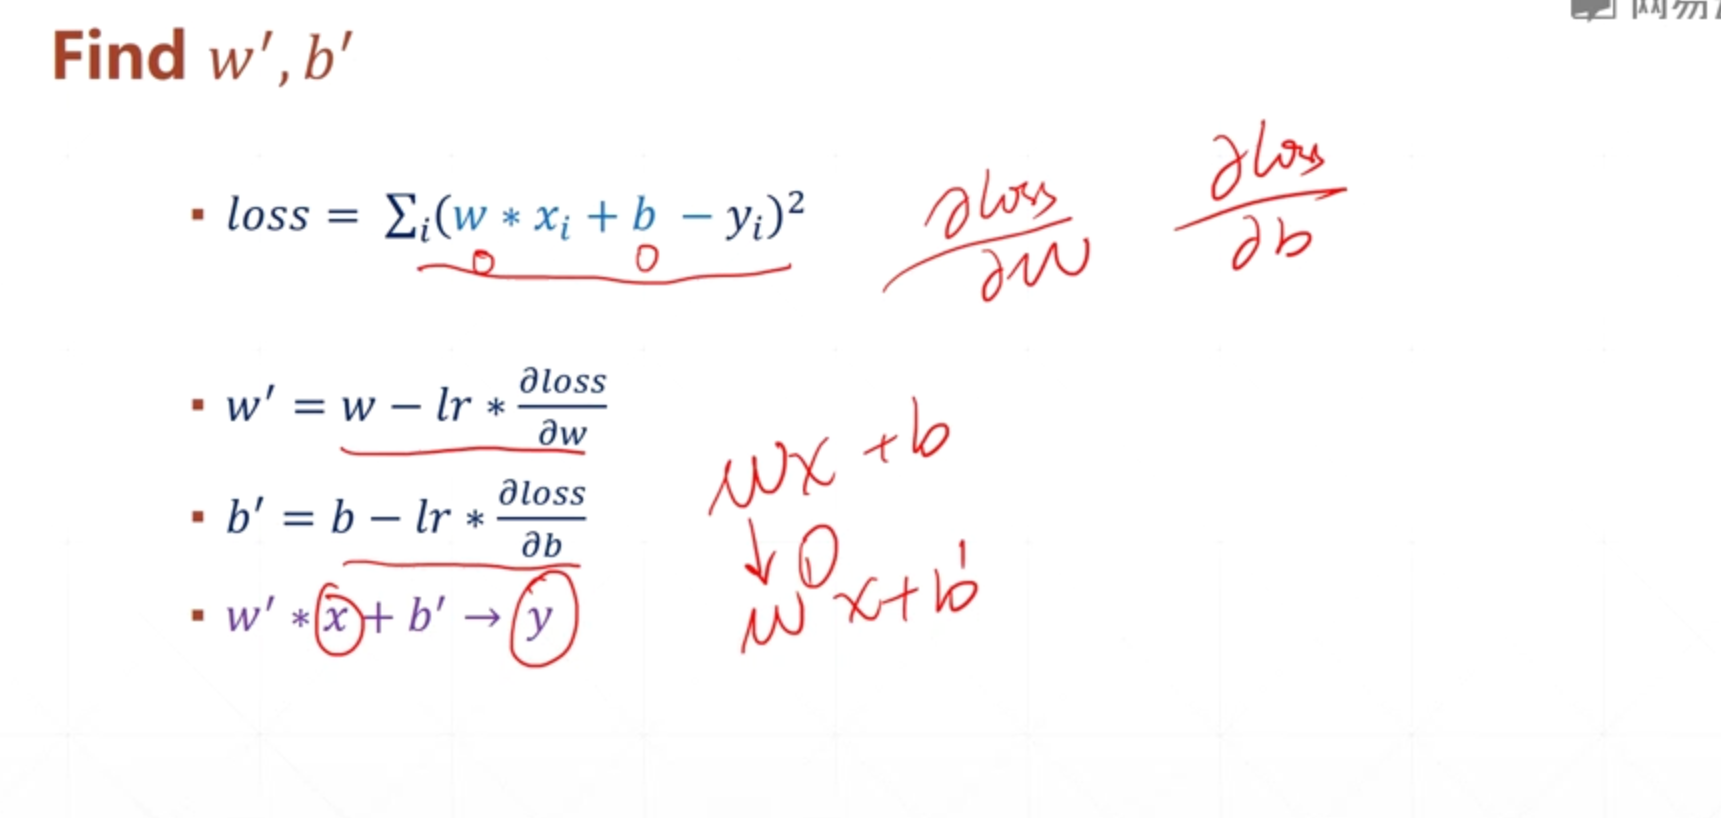 网易
Find w′, b′
▪ loss = ∑ᵢ(w * xᵢ + b − yᵢ)²
∂loss/∂w
∂loss/∂b
▪ w′ = w − lr * ∂loss/∂w
▪ b′ = b − lr * ∂loss/∂b
▪ w′ * x + b′ → y
wx + b
↓
w′x + b′